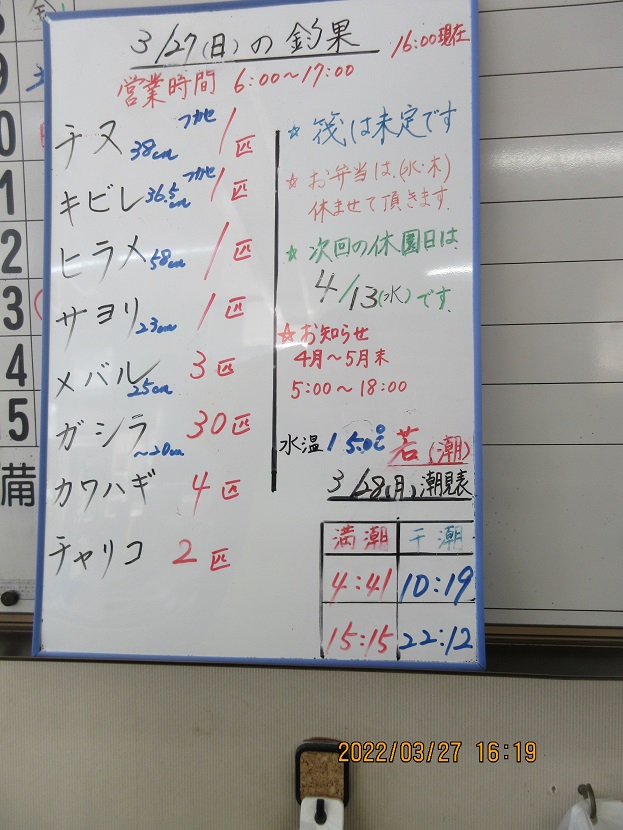 3/27(日)の釣果
16:00現在
営業時間 6:00～17:00
チヌ 38cm フカセ 1匹
キビレ 36.5cm フカセ 1匹
ヒラメ 58cm 1匹
サヨリ 23cm 1匹
メバル 25cm 3匹
ガシラ ～20cm 30匹
カワハギ 4匹
チャリコ 2匹
☆ 筏は未定です
☆ お弁当は、(水・木)
休ませて頂きます。
☆ 次回の休園日は、
4/13(水)です。
☆お知らせ
4月～5月末
5:00～18:00
水温 15.0℃ 若(潮)
3/28(月)潮見表
満潮 干潮
4:41 10:19
15:15 22:12
9
0
1
2
3
4
15
備
2022/03/27 16:19